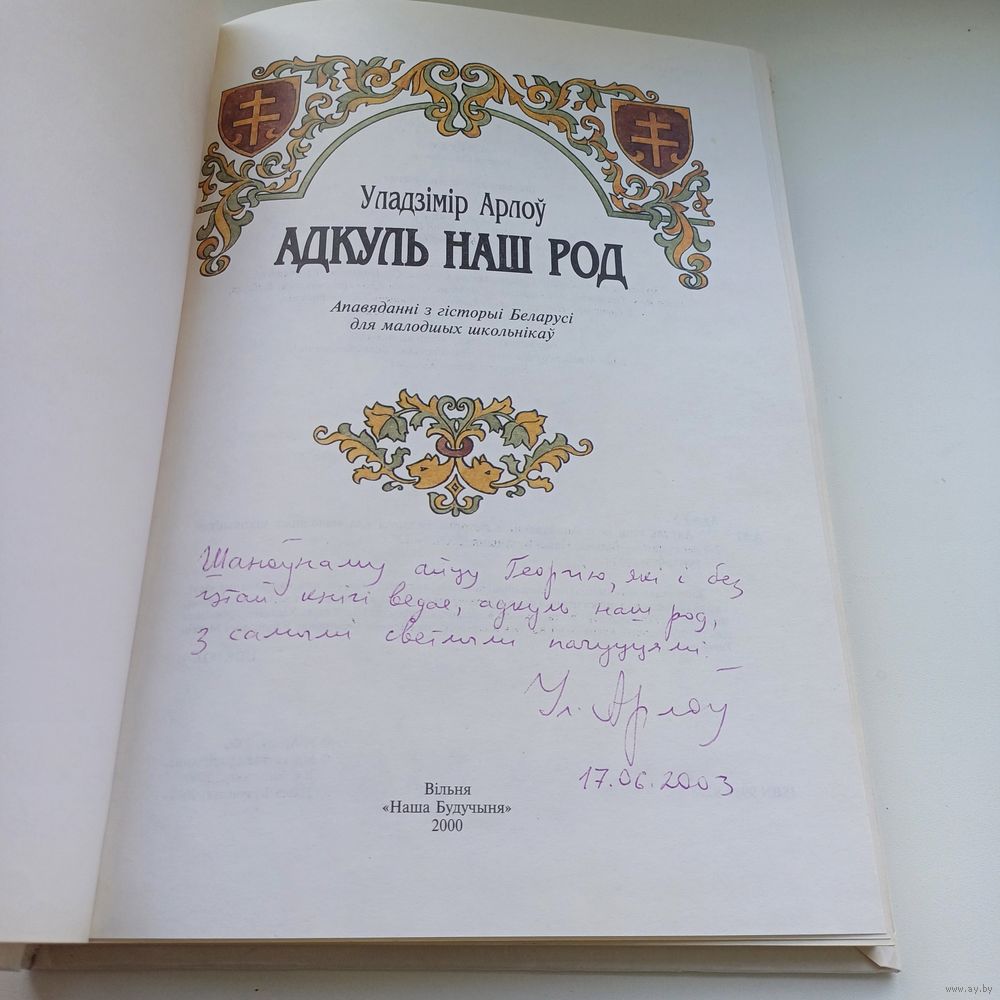 Уладзімір Арлоў
АДКУЛЬ НАШ РОД
Апавяданні з гісторыі Беларусі
для малодшых школьнікаў
Шаноўнаму айцу Георгію, які і без
гэтай кнігі ведае, адкуль наш род,
з самымі светлымі пачуццямі.
Ул. Арлоў
17.06.2003
Вільня
«Наша Будучыня»
2000
www.ay.by